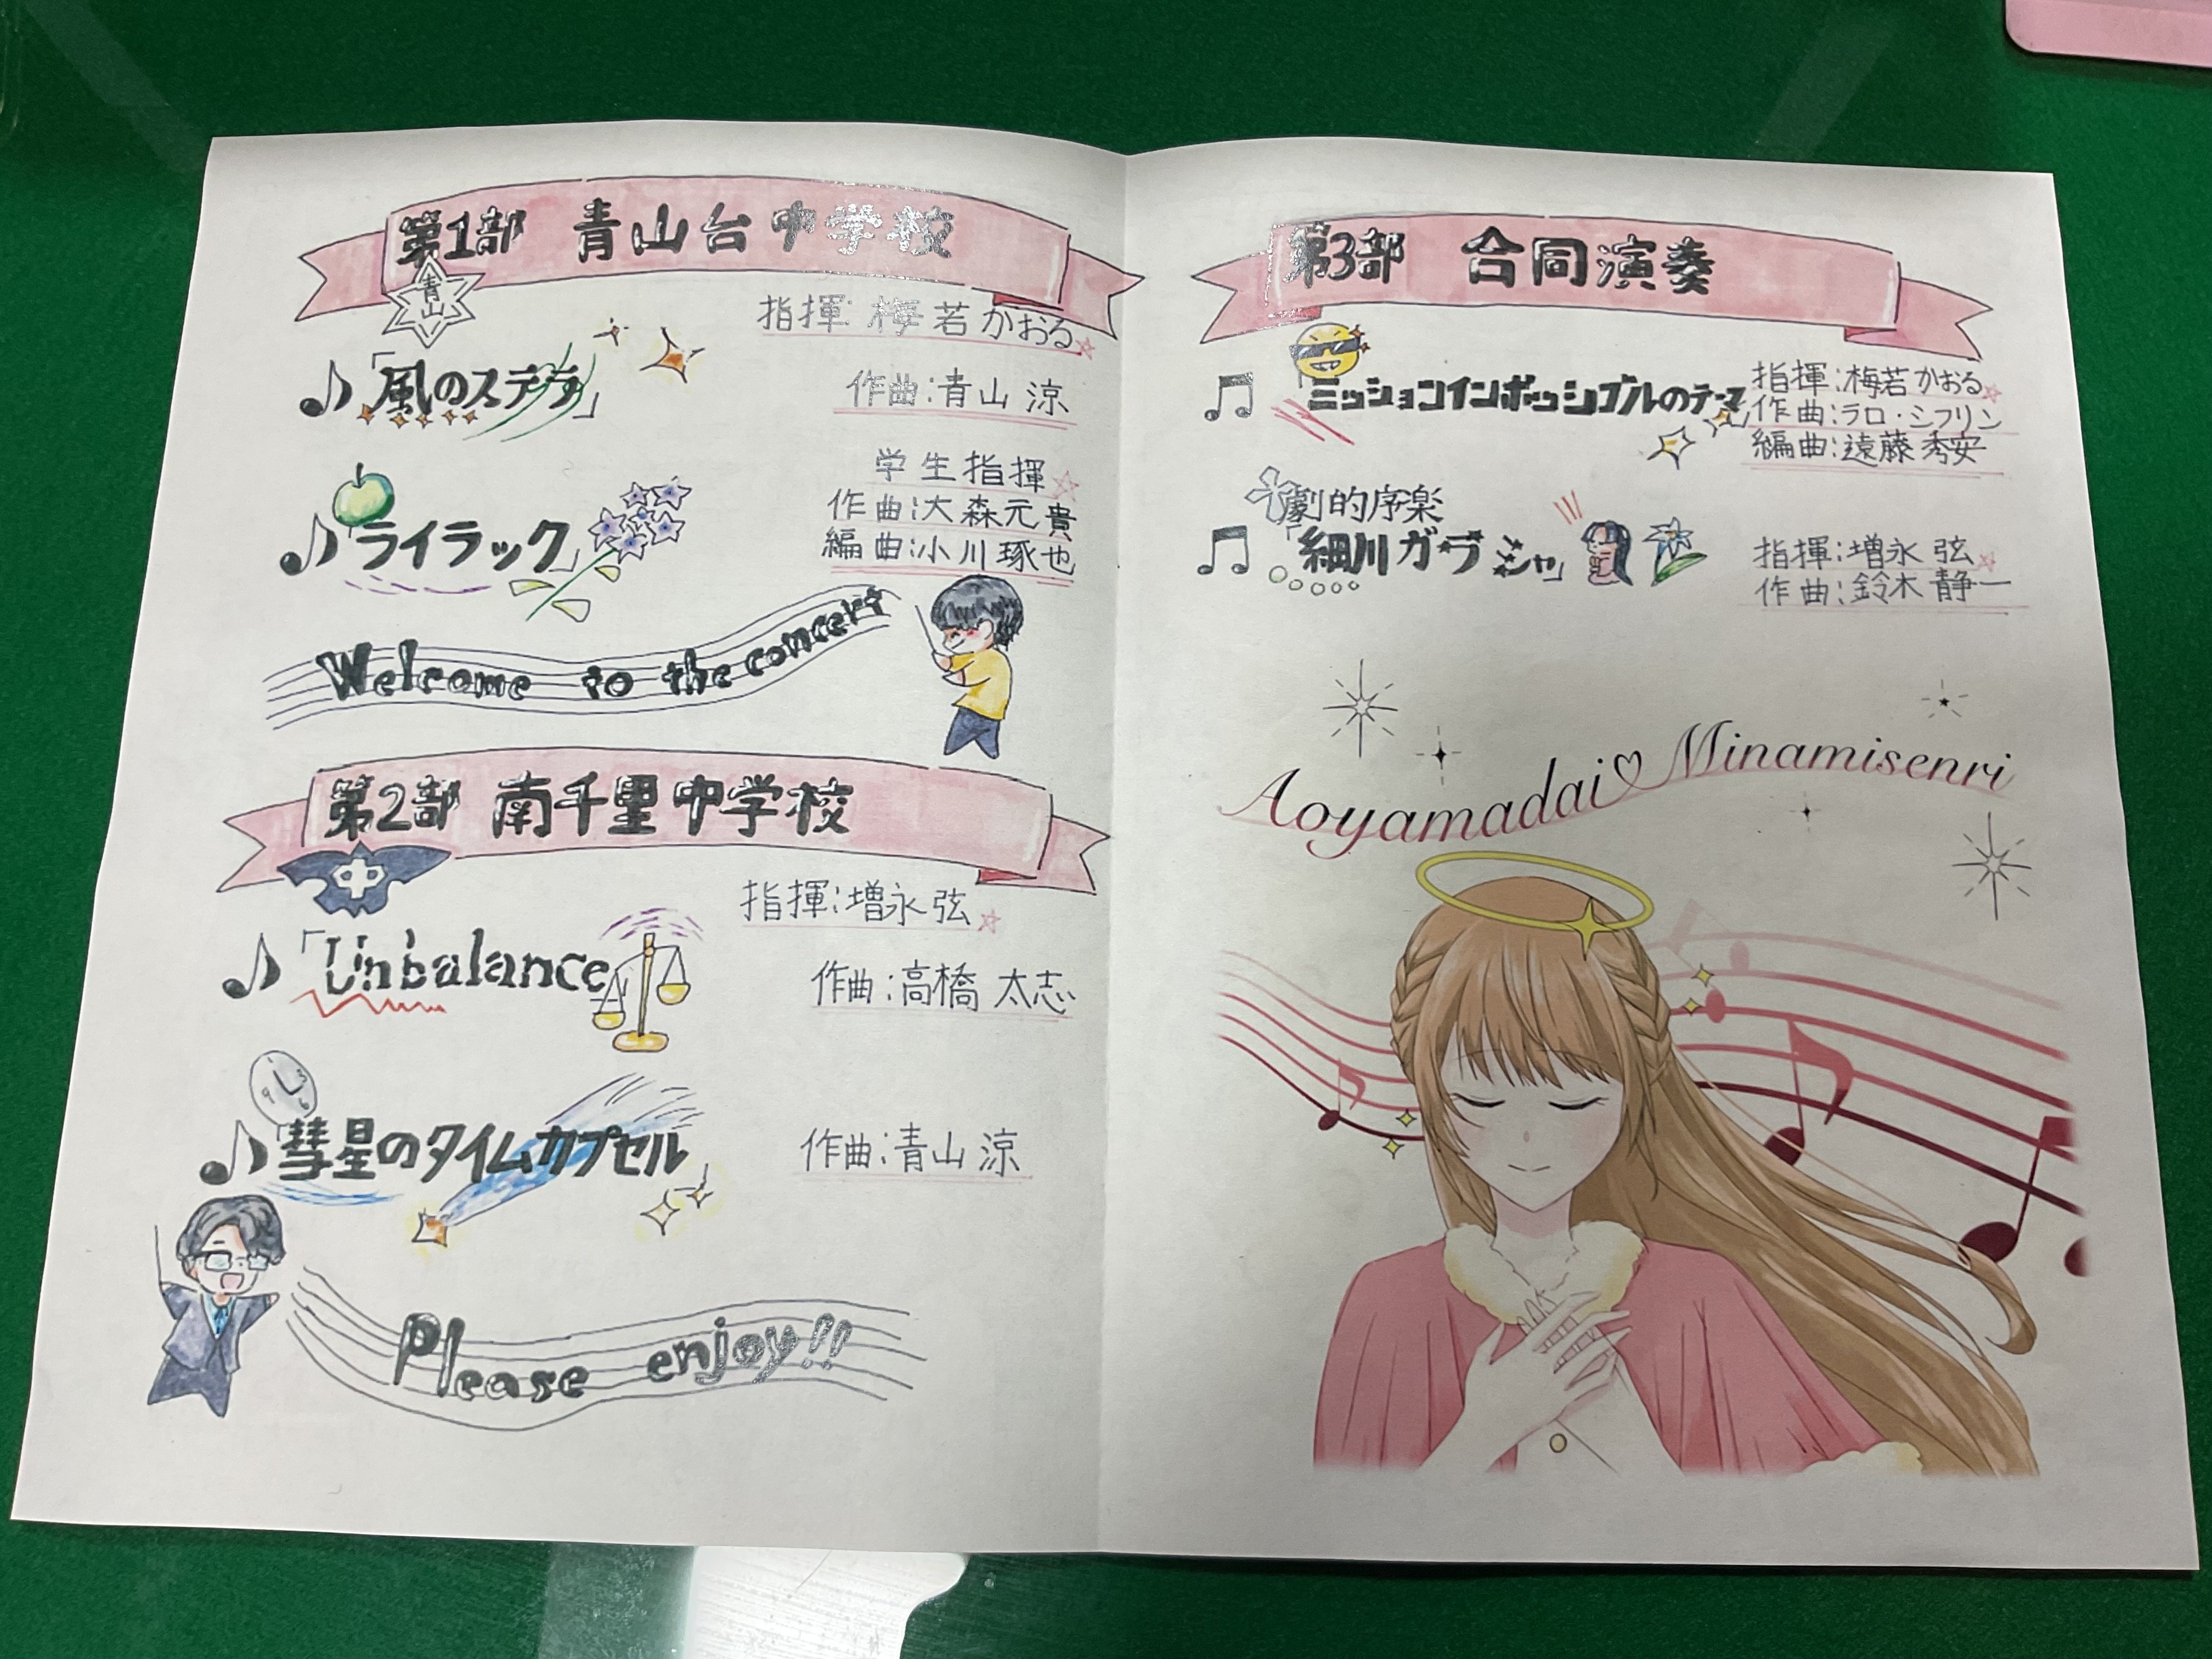 第1部 青山台中学校
青山
指揮:梅若かおる
♪「風のステラ」
作曲:青山 涼
学生指揮
♪「ライラック」
作曲:大森元貴
編曲:小川琢也
Welcome to the concert
第2部 南千里中学校
中
指揮:増永 弦
♪「Unbalance」
作曲:高橋 太志
♪「彗星のタイムカプセル」
作曲:青山 涼
Please enjoy!!
第3部 合同演奏
♫「ミッションインポッシブルのテーマ」
指揮:梅若かおる
作曲:ラロ・シフリン
編曲:遠藤秀安
劇的序楽
♫「細川ガラシャ」
指揮:増永 弦
作曲:鈴木静一
Aoyamadai♡Minamisenri